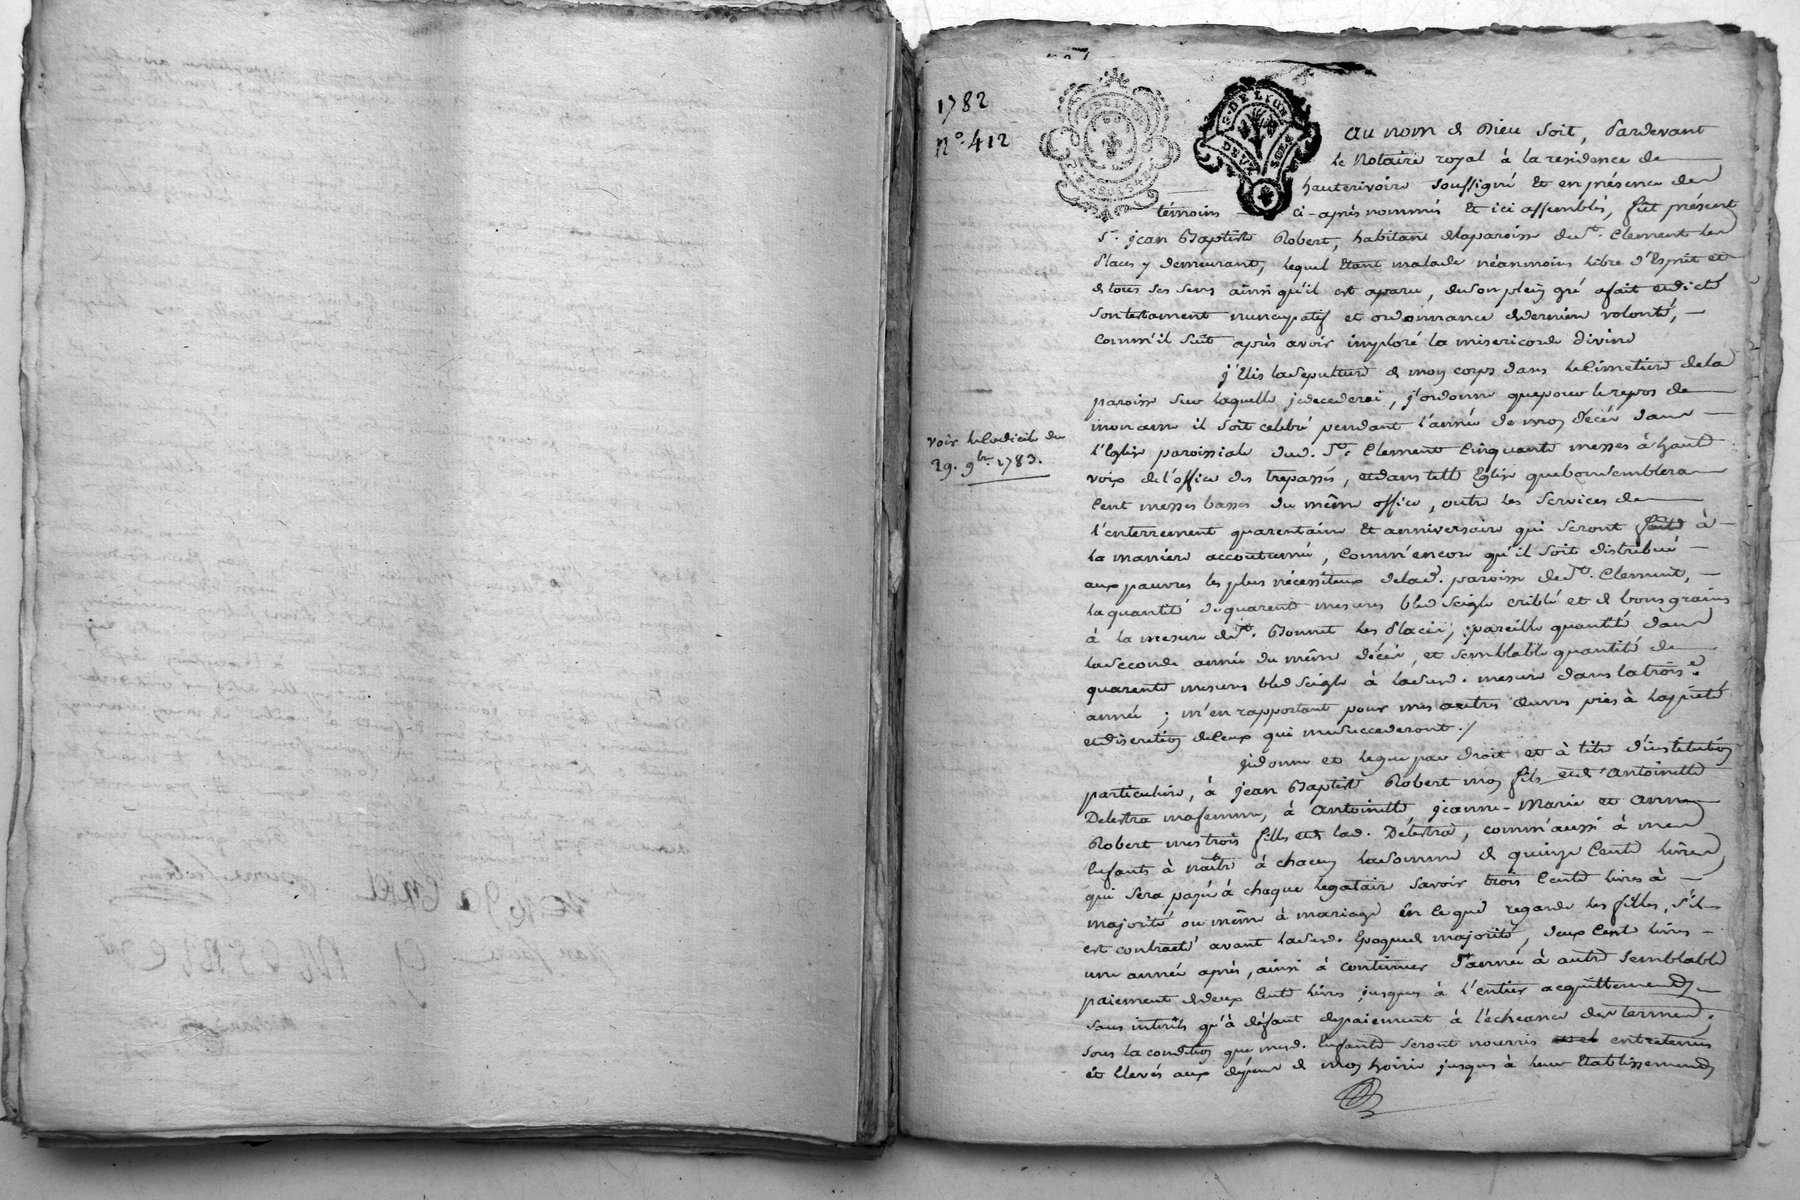 1782
n.° 412
G. DE LYON
DEUX SOLS
au nom de Dieu soit, Pardevant
le Notaire royal à la residence de
hauterivoire soussigné Et en présence des
témoins ci-après nommés Et ici assemblés, fut présent
Sr. jean Baptiste Robert, habitant de la paroisse de St. Clement les
Places y demeurant, lequel étant malade néanmoins libre d'Esprit et
de tous ses sens ainsi qu'il est aparu, de son plein gré a fait et dicté
son testament nuncupatif et ordonnance de derniere volonté,
comm'il suit après avoir imploré la misericorde divine
j'Elis la sepulture de mon corps dans le Cimetiere de la
paroisse sur laquelle je decederai, j'ordonne que pour le repos de
mon ame il soit celebré pendant l'année de mon décés dans
l'Eglise paroissiale dud. St. Clement Cinquante messes à haute
voix de l'office des trepassés, et dans telle Eglise que bon semblera
Cent messes basses du même office, outre les services de
l'enterrement quarentaine Et anniversaire qui seront faits à
la maniere accoutumé, Comm'encore qu'il soit distribué
aux pauvres les plus nécessiteux de lad. paroisse de St. Clement,
la quantité de quarente mesures bled seigle criblé et de bons grains
à la mesure de St. Bonnet les Places, pareille quantité dans
la seconde année du même décés, et semblable quantité de
quarente mesures bled seigle à la susd. mesure dans la trois.e
année ; m'en rapportant pour mes autres Œuvres pies à la piété
et discretion de Ceux qui me succederont ./
voir le Codicile du
29. 9bre 1783.
je donne et legue par droit et à titre d'institution
particuliere, à jean Baptiste Robert mon fils et de antoinette
Delestra ma femme, à antoinette, jeanne-Marie et anne
Robert mes trois filles et de lad. Delestra, comm'aussi à mes
Enfants à naître à chacun la somme de quinze Cents livres
qui sera payé à chaque legataire savoir trois Cents livres à
majorité ou même à mariage En Ce que regarde les filles, s'il
est contracté avant la susd. Epoque de majorité, deux Cent livres
une année après, ainsi à continuer d'année à autre semblable
paiement de deux Cents livres jusques à l'entier acquittement
sans interêts qu'à défaut de paiement à l'échéance des termes,
sous la condition que mesd. Enfants seront nourris entretenus
et Elevés aux dépens de mon hoirie jusques à leur Etablissement